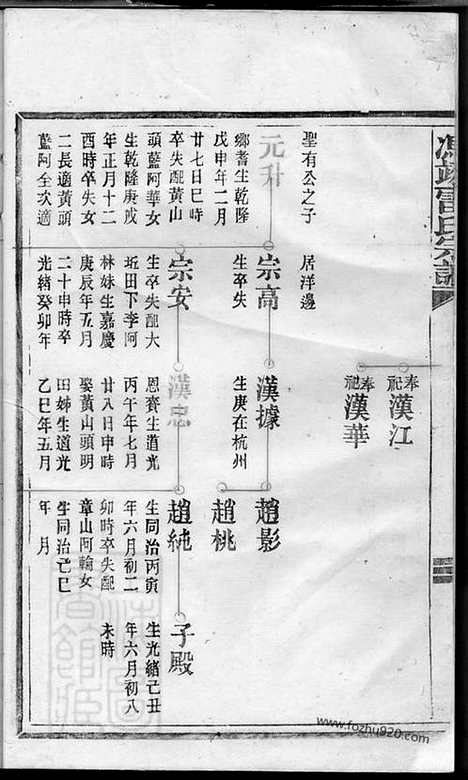 馮翊雷氏宗譜
奉祀漢江
奉祀漢華
聖有公之子
居洋邊
元升
鄉耆生乾隆
戊申年二月
廿七日巳時
卒失配黃山
頭藍阿華女
生乾隆庚戌
年正月十二
酉時卒失女
二長適黃頭
藍阿全次適
宗高
生卒失
宗安
生卒失配大
近田下李阿
林妹生嘉慶
庚辰年五月
二十申時卒
光緒癸卯年
漢據
生庚在杭州
漢忠
恩賚生道光
丙午年七月
廿八日申時
娶黃山頭明
田姊生道光
乙巳年五月
趙影
趙桃
趙純
生同治丙寅
年六月初二
卯時卒失配
章山阿翰女
生同治亡巳
年月
子殿
生光緒己丑
年六月初八
未時
www.fozhu920.com